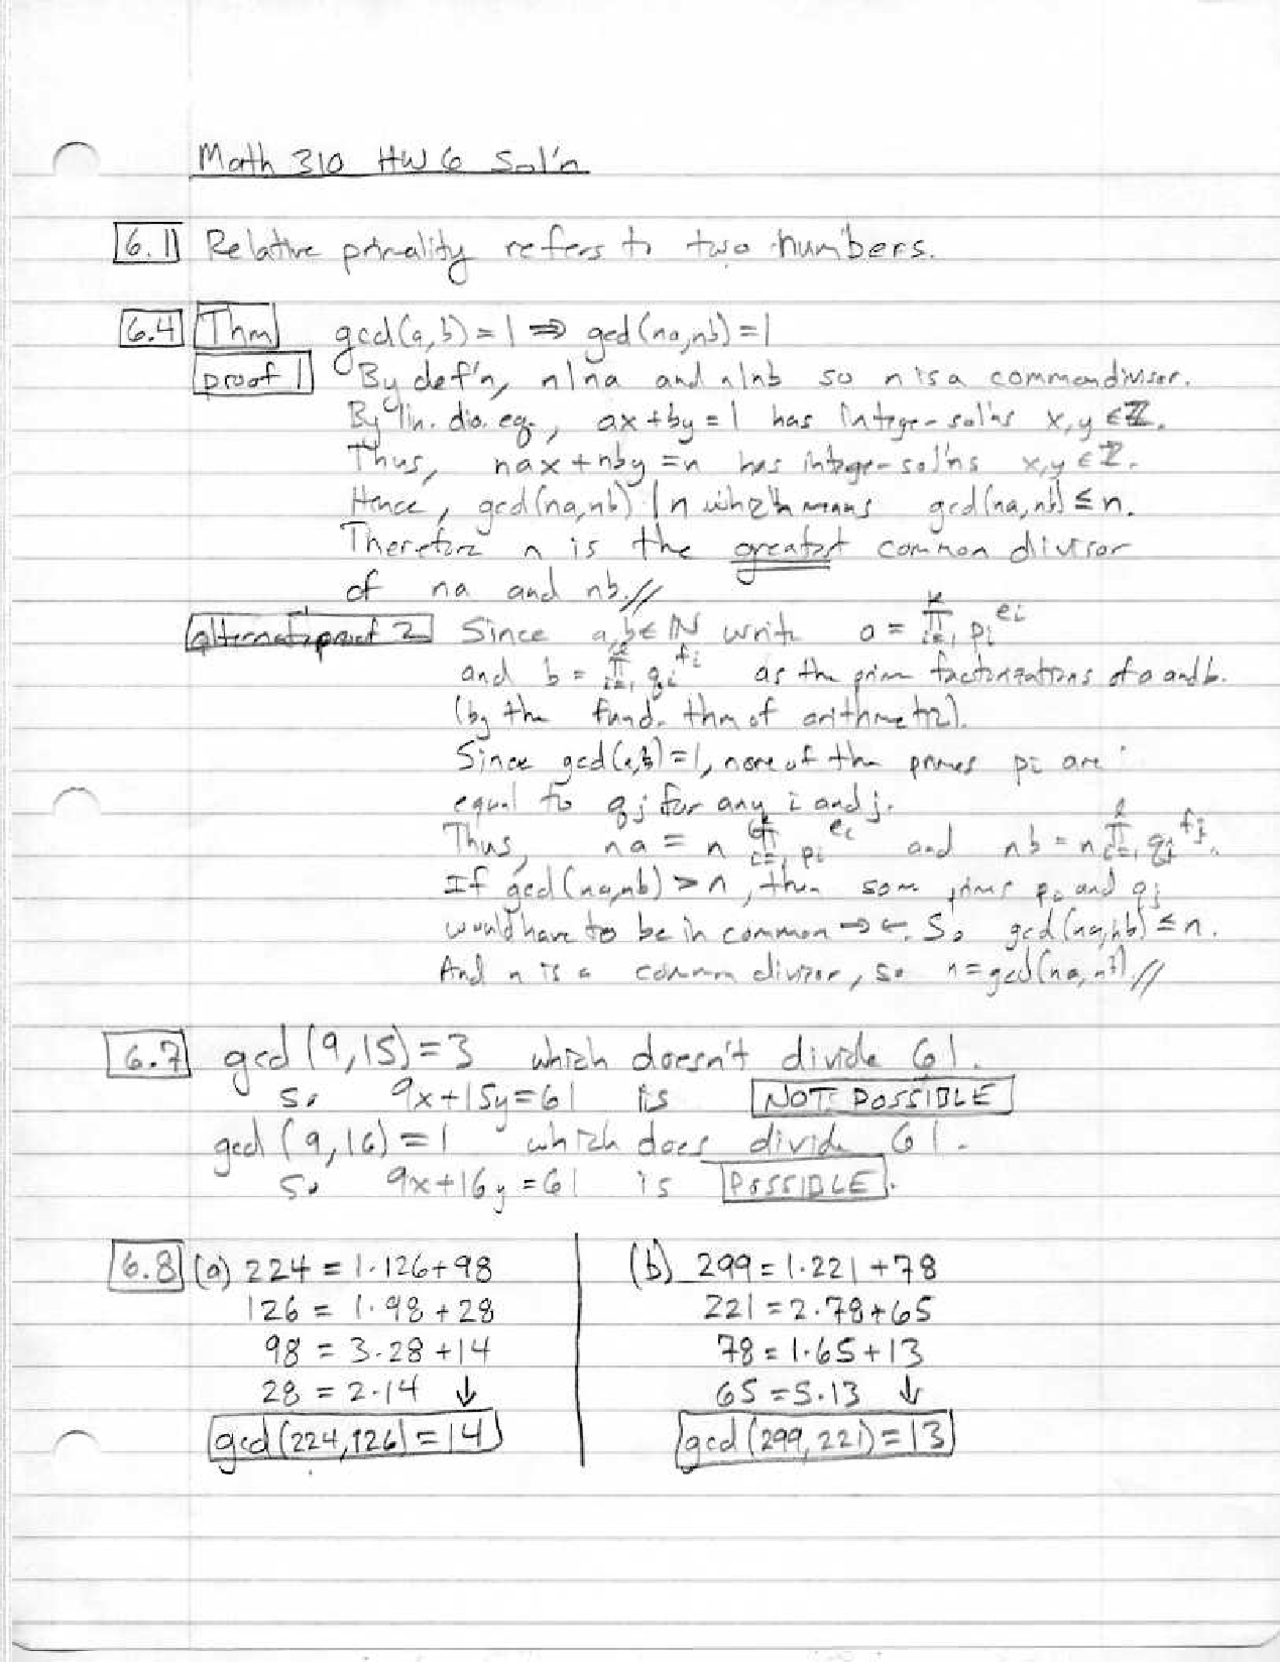 Math 310 HW 6 Sol'n
6.1 Relative primality refers to two numbers.
6.4 Thm gcd(a,b)=1 ⇒ gcd(na,nb)=1
proof 1 By def'n, n|na and n|nb so n is a common divisor.
By lin. dio. eq., ax+by=1 has integer sol'ns x,y∈ℤ.
Thus, nax+nby=n has integer sol'ns x,y∈ℤ.
Hence, gcd(na,nb)|n which means gcd(na,nb)≤n.
Therefore n is the greatest common divisor
of na and nb.//
alternate proof 2 Since a,b∈ℕ write a = ∏_{i=1}^{k} p_i^{e_i}
and b = ∏_{i=1}^{l} q_i^{f_i} as the prime factorizations of a and b.
(by the fund. thm of arithmetic).
Since gcd(a,b)=1, none of the primes p_i are
equal to q_j for any i and j.
Thus, na = n ∏_{i=1}^{k} p_i^{e_i} and nb = n ∏_{i=1}^{l} q_j^{f_j}.
If gcd(na,nb)>n, then some prime p_i and q_j
would have to be in common →←. So gcd(na,nb)≤n.
And n is a common divisor, so n=gcd(na,nb).//
6.7 gcd(9,15)=3 which doesn't divide 61.
So 9x+15y=61 is NOT POSSIBLE
gcd(9,16)=1 which does divide 61.
So 9x+16y=61 is POSSIBLE.
6.8 (a) 224 = 1·126+98
126 = 1·98+28
98 = 3·28+14
28 = 2·14 ↓
gcd(224,126)=14
(b) 299=1·221+78
221=2·78+65
78=1·65+13
65=5·13 ↓
gcd(299,221)=13